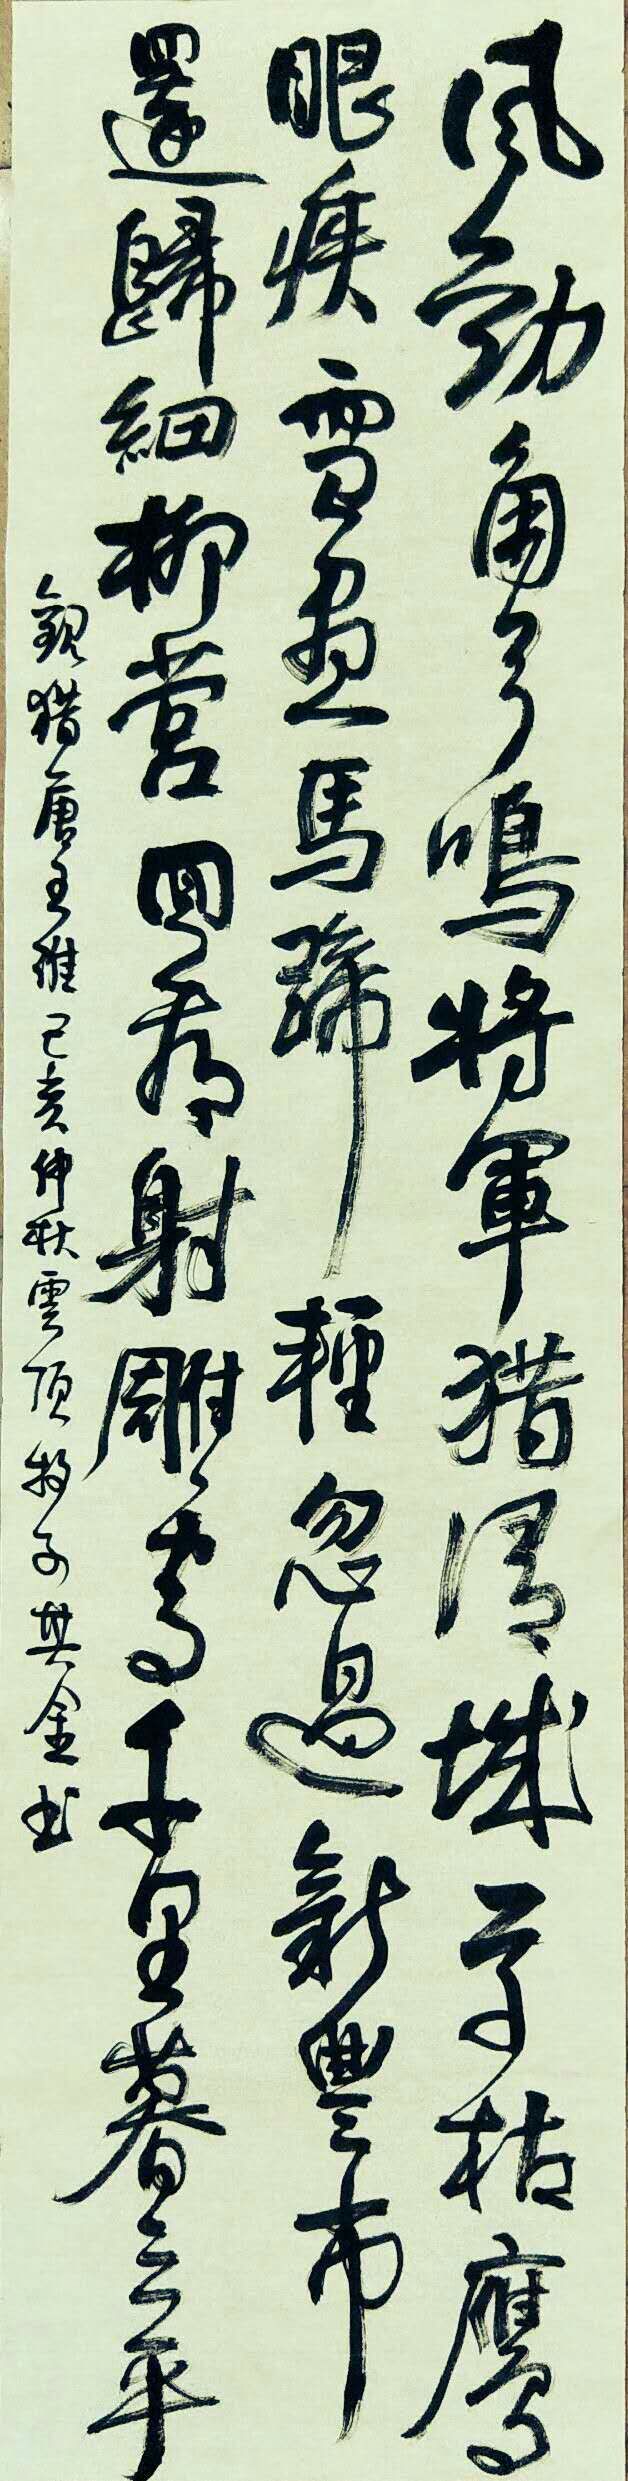 風勁角弓鳴將軍猎渭城草枯鹰
眼疾雪盡馬蹄輕忽過新豐市
還歸細柳營回看射雕處千里暮雲平
觀猎唐王維己亥仲秋雲顶牧子興金书